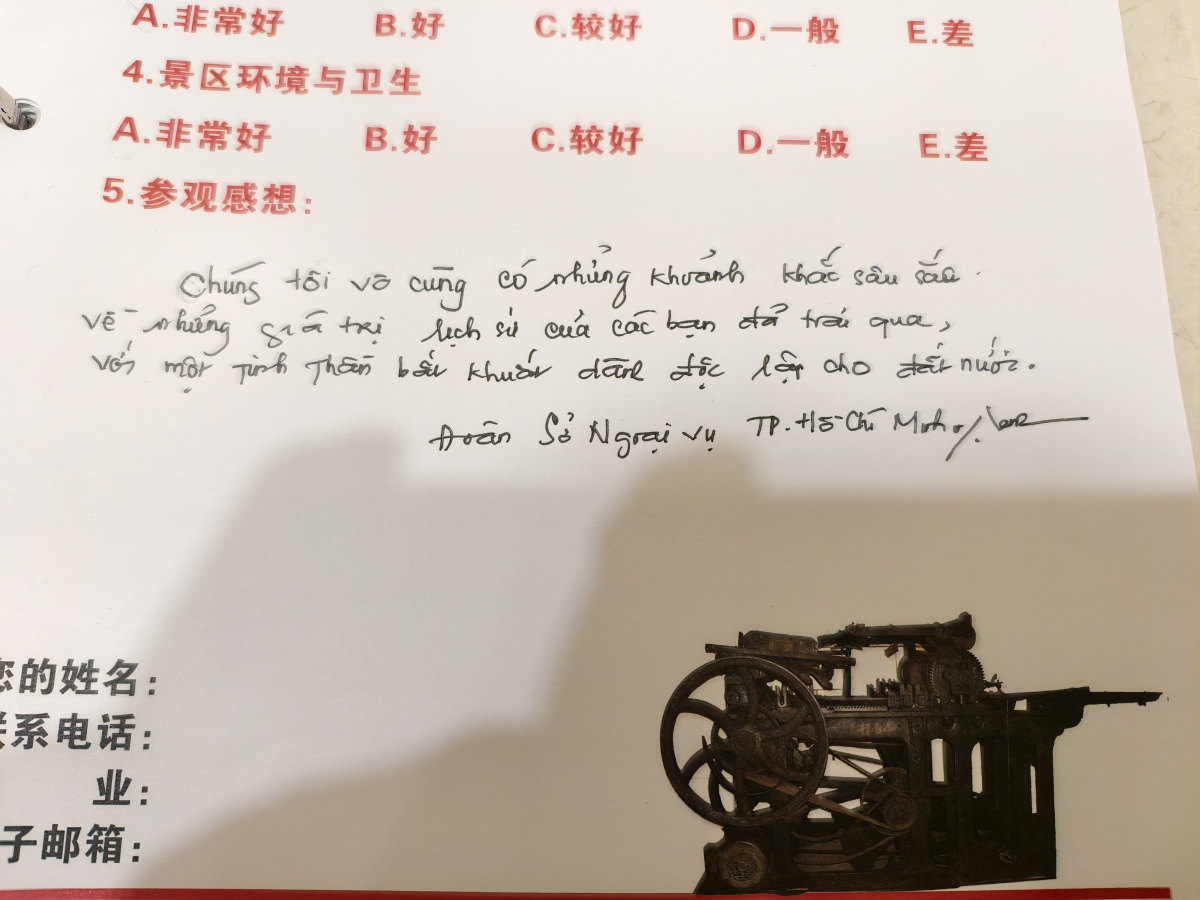 A.非常好 B.好 C.较好 D.一般 E.差
4.景区环境与卫生
A.非常好 B.好 C.较好 D.一般 E.差
5.参观感想:
Chúng tôi vô cùng có những khoảnh khắc sâu sắc
về những giá trị lịch sử của các bạn đã trải qua,
với một tinh thần bất khuất dành độc lập cho đất nước.
Đoàn Sở Ngoại vụ TP. Hồ Chí Minh
您的姓名:
联系电话:
业:
子邮箱: